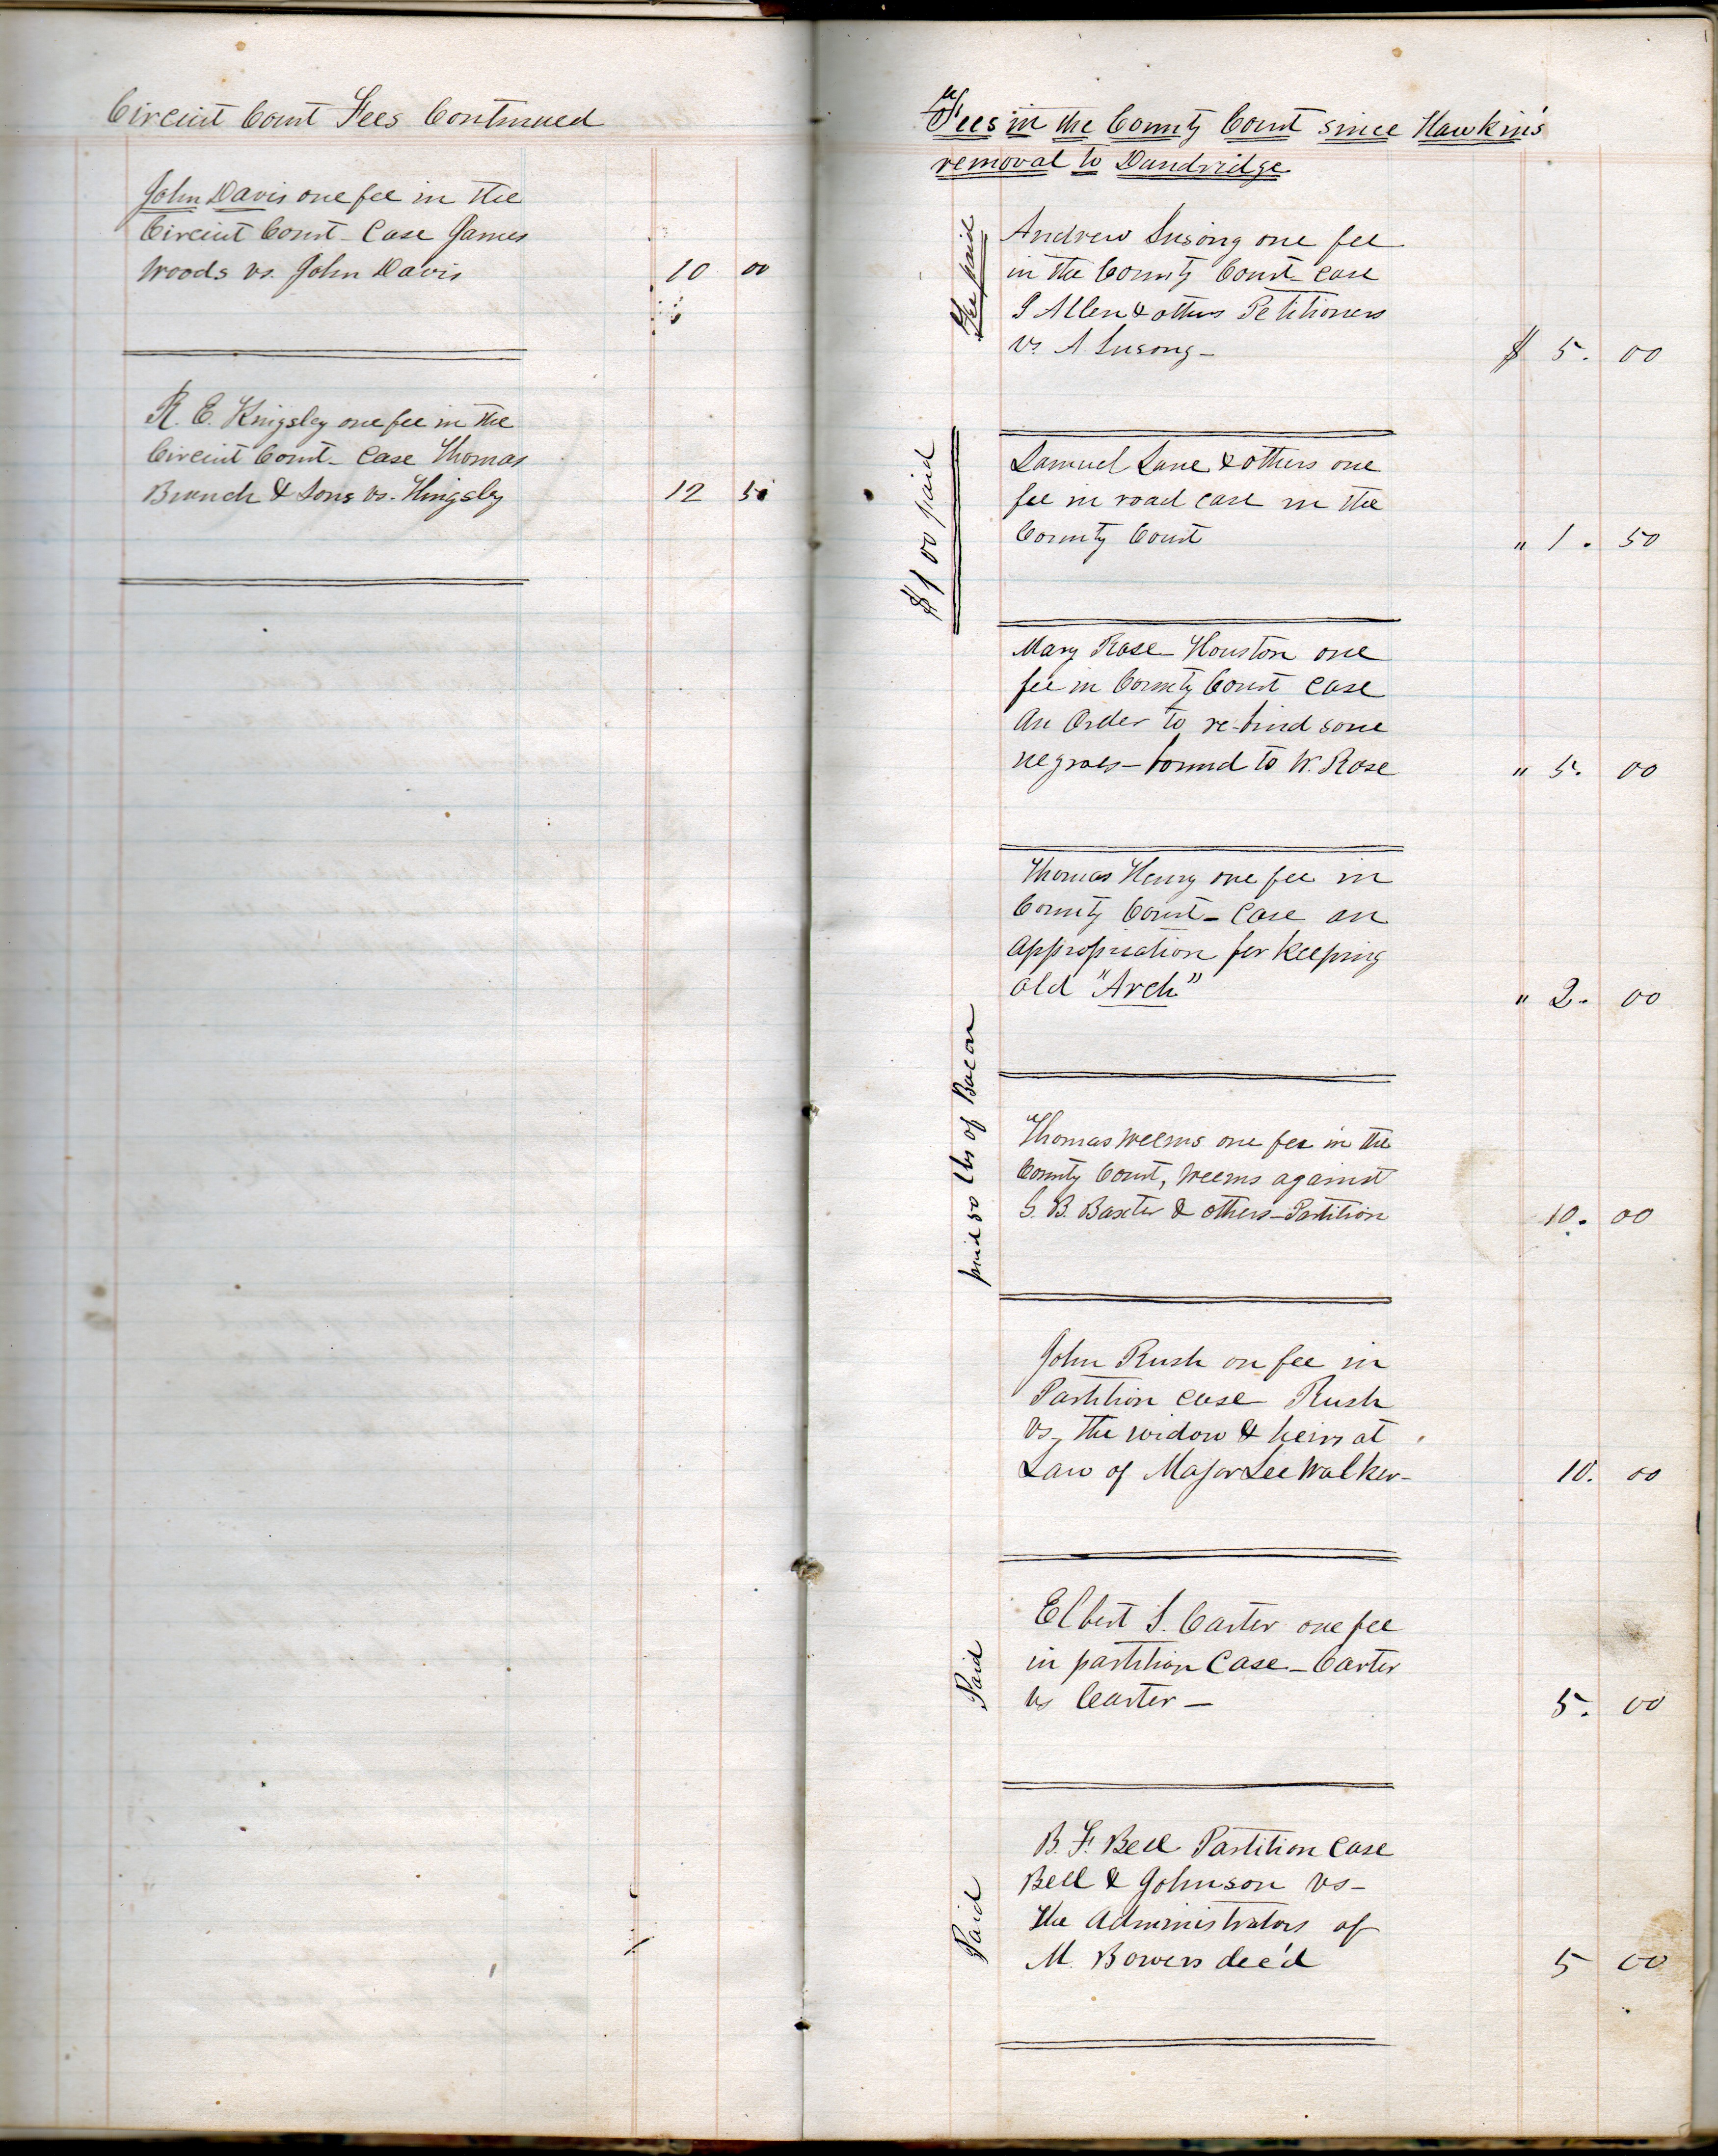 Circuit Court Fees Continued
John Davis one fee in the
Circuit Court - Case James
Woods vs. John Davis 10 00
R. E. Kingsley one fee in the
Circuit Court - Case Thomas
Branch & Sons vs. Kingsley 12 50
Fees in the County Court since Hawkin's
removal to Dandridge
Fee paid
Andrew Susong one fee
in the County Court case
I Allen & others Petitioners
vs. A. Susong - $ 5. 00
$1 00 paid
Samuel Lane & others one
fee in road case in the
County Court " 1. 50
Mary Rose Houston one
fee in County Court case
An Order to re-bind some
negroes - bound to W. Rose " 5. 00
Thomas Henry one fee in
County Court - Case an
appropriation for keeping
old "Arch" " 2. 00
paid 50 lbs of Bacon
Thomas Weems one fee in the
County Court, Weems against
G. B. Baxter & others - Partition 10. 00
John Rush on fee in
Partition case Rush
vs, the widow & heirs at
Law of Major Lee Walker - 10. 00
Paid
Elbert S. Carter one fee
in partition Case - Carter
vs Carter - 5. 00
Paid
B. F. Bell Partition Case
Bell & Johnson vs -
the Administrators of
M. Bowers dec'd 5 00